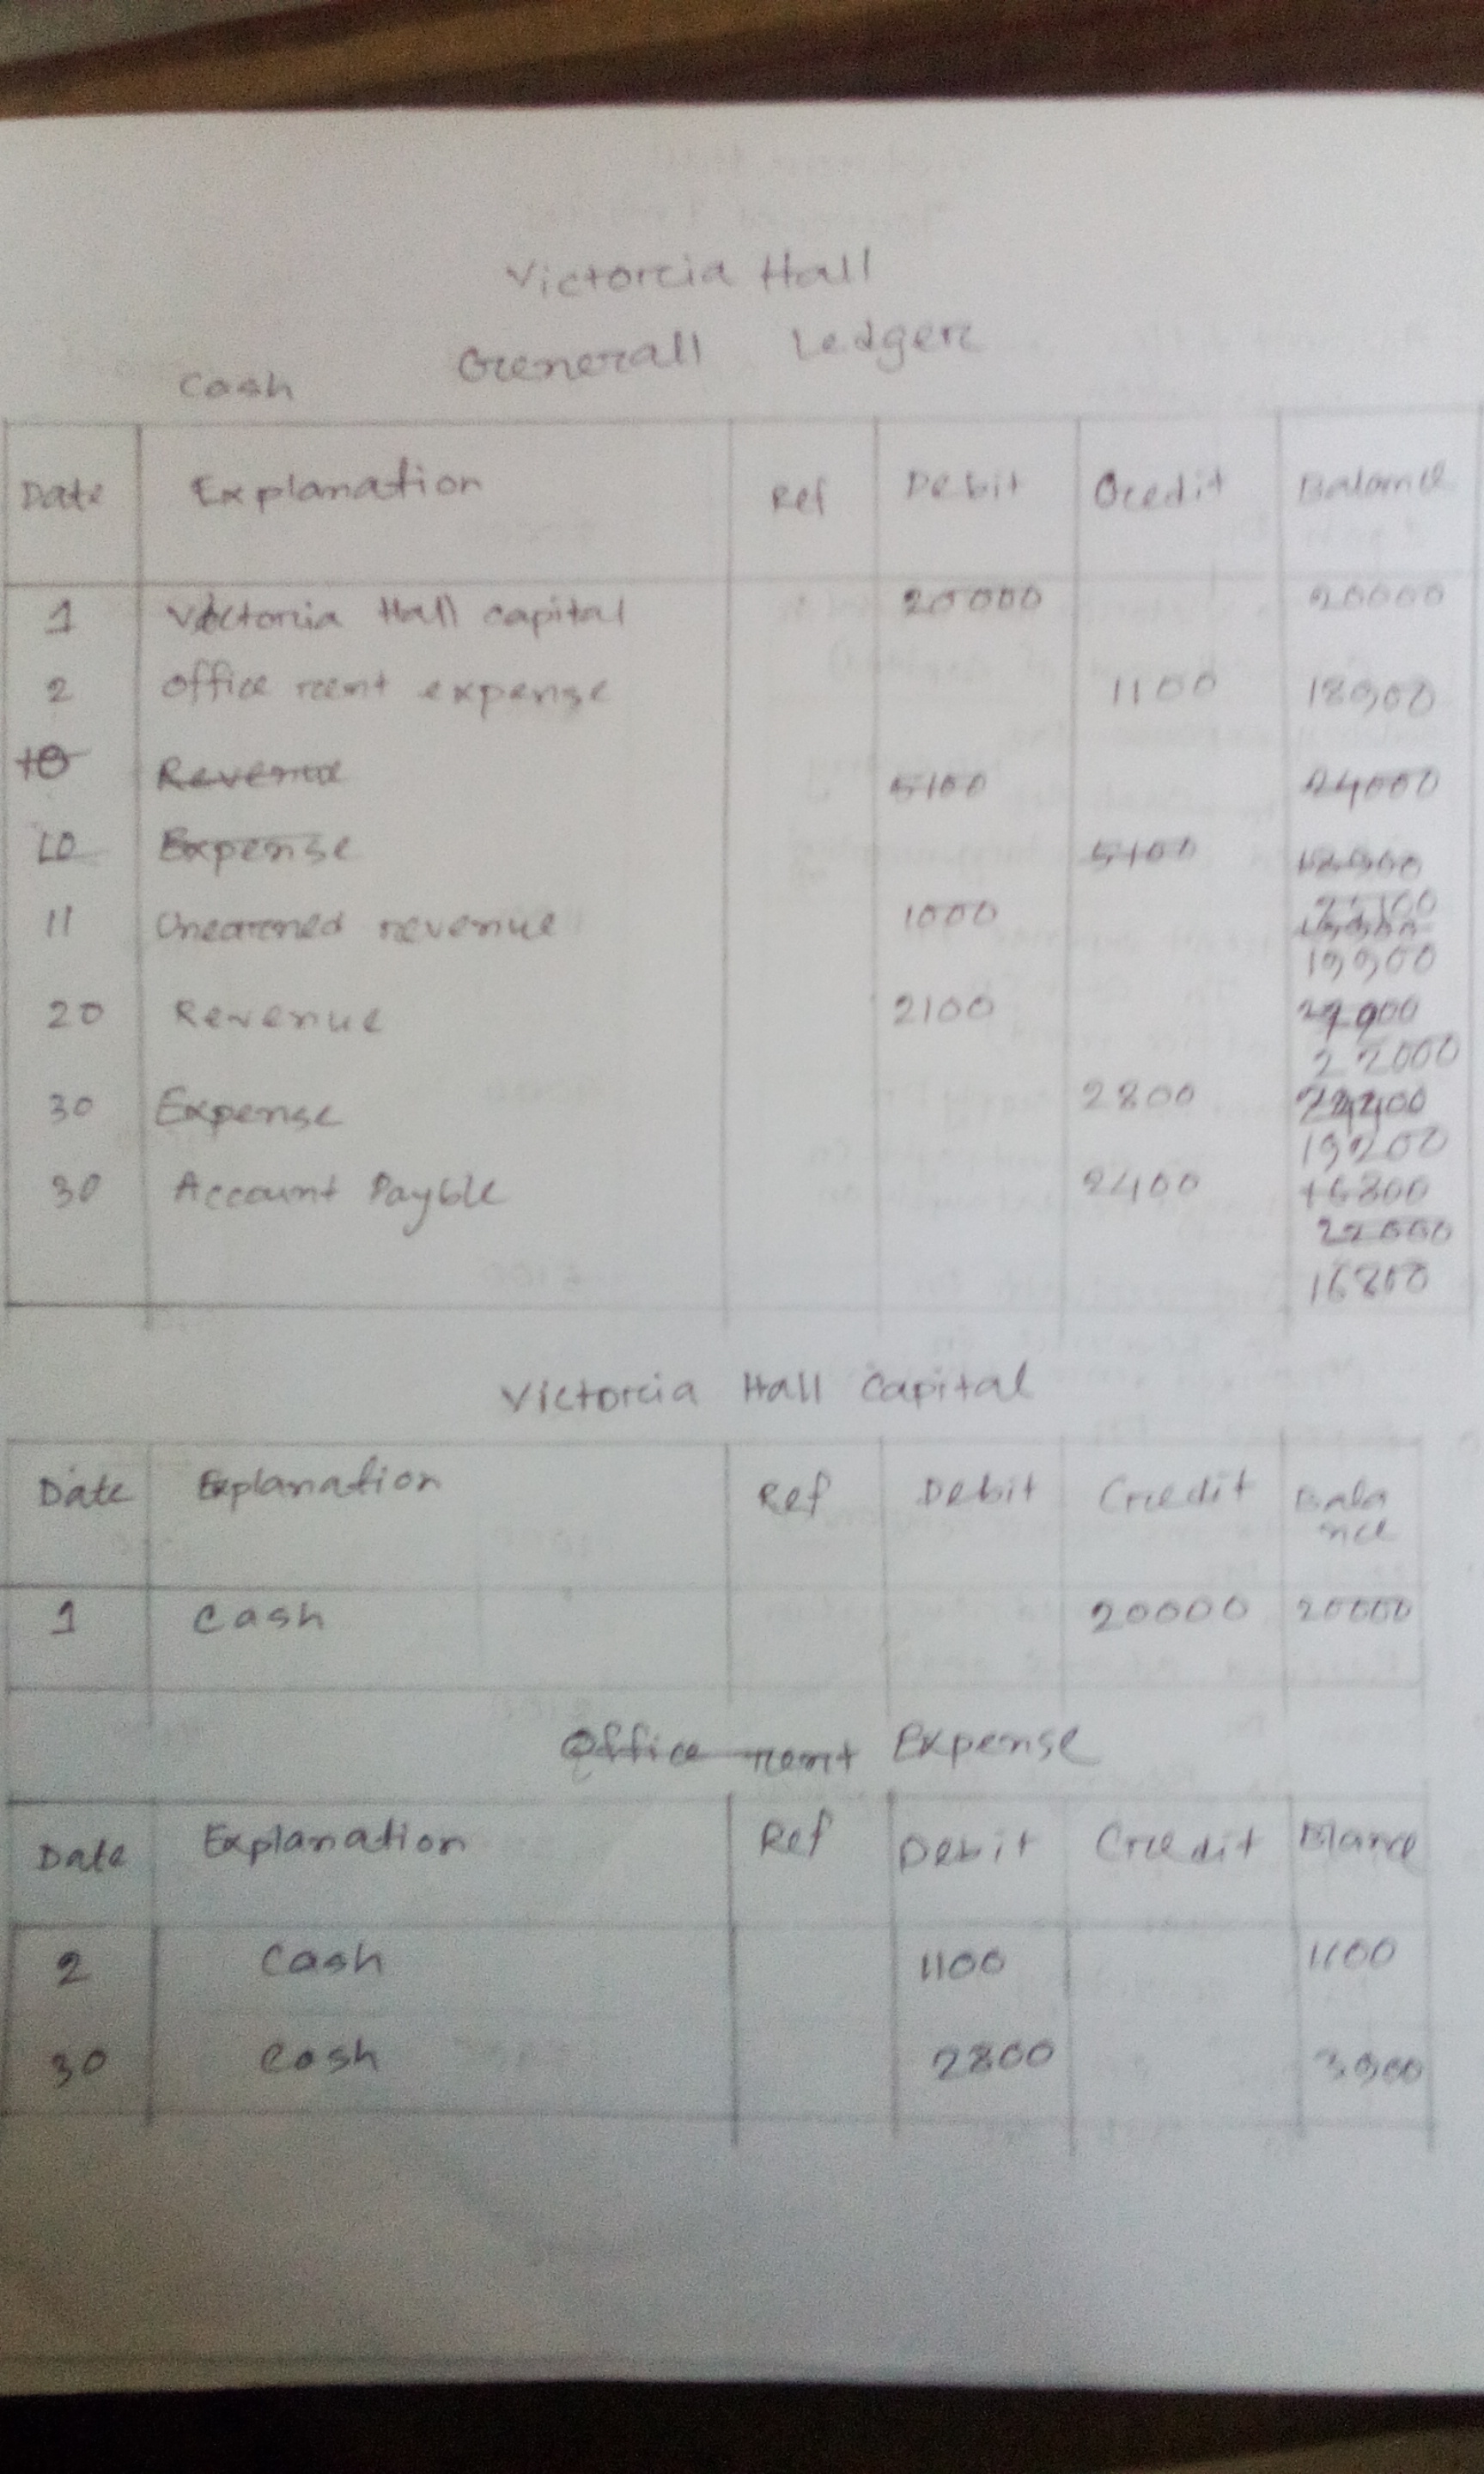 Victorcia Hall
Generall Ledger
Cash
Date Explanation Ref Debit Credit Balance
1 Victoria Hall capital 20000 20000
2 Office rent expense 1100 18900
10 Revenue 5100 24000
10 Expense 5100 18900
11 Unearned revenue 1000
19900
20 Revenue 2100
22000
30 Expense 2800
19200
30 Account Payble 2400 16800
22000
16800
Victorcia Hall Capital
Date Explanation Ref Debit Credit Balance
1 Cash 20000 20000
Office rent Expense
Date Explanation Ref Debit Credit Blance
2 Cash 1100 1100
30 Cash 2800 3900